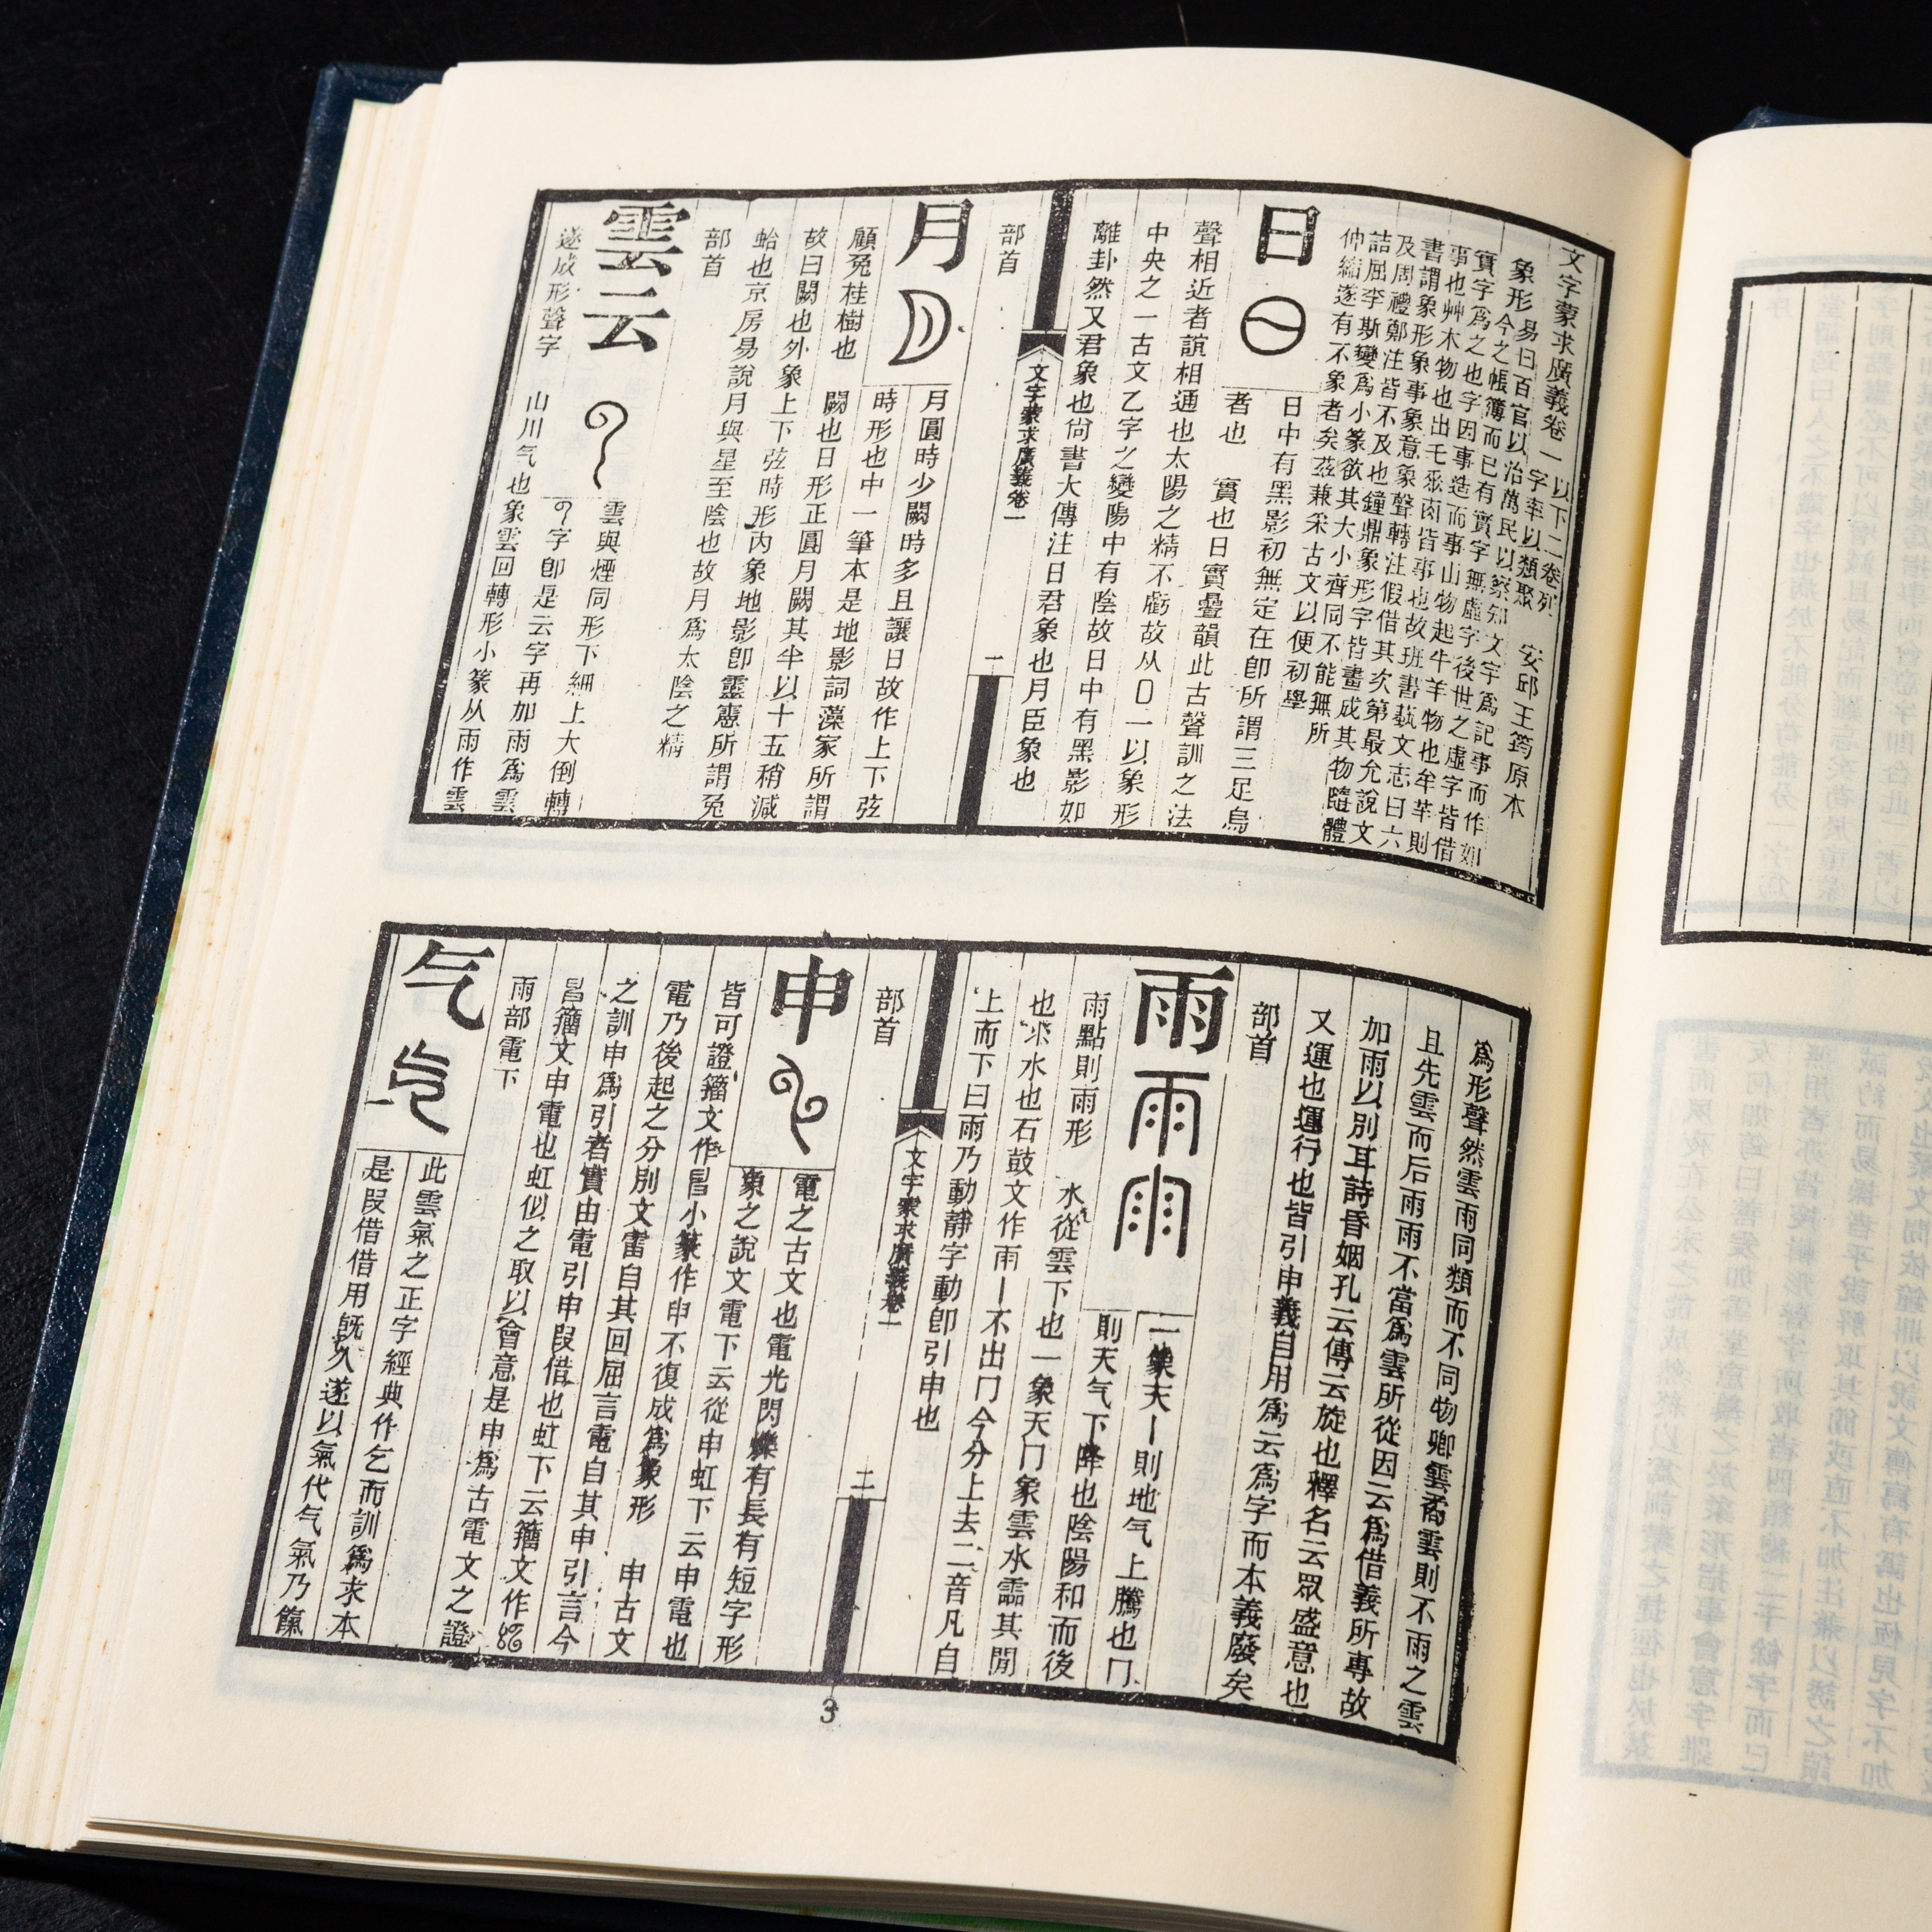 文字蒙求廣義卷一 以下二卷列字率以類聚 安邱王筠原本
象形 易曰百官以治萬民以察知文字爲記事而作如
今之帳簿而已有實字無虛字後世之虛字皆借
實字爲之也字因事造而事由物起牛羊物也牟芈則
事也艸木物也出乇𠂹𠧪皆事也故班書藝文志曰六
書謂象形象事象意象聲轉注假借其次第最允說文
及周禮鄭注皆不及也鐘鼎象形字皆畫成其物隨體
詰屈李斯變爲小篆欲其大小齊同不能無所
伸縮遂有不象者矣茲兼采古文以便初學
日
日中有黑影初無定在卽所謂三足烏
者也 實也日實疊韻此古聲訓之法
聲相近者誼相通也太陽之精不虧故从口一以象形
中央之一古文乙字之變陽中有陰故日中有黑影如
離卦然又君象也尙書大傳注日君象也月臣象也
部首
文字蒙求廣義卷一
一
月
月圓時少闕時多且讓日故作上下弦
時形也中一筆本是地影詞藻家所謂
顧兔桂樹也 闕也日形正圓月闕其半以十五稍減
故曰闕也外象上下弦時形內象地影卽靈憲所謂兔
蛤也京房易說月與星至陰也故月爲太陰之精
部首
雲 云
雲與煙同形下細上大倒轉
字卽是云字再加雨爲雲
遂成形聲字 山川气也象雲回轉形小篆从雨作雲
爲形聲然雲雨同類而不同物卿雲矞雲則不雨之雲
且先雲而后雨雨不當爲雲所從因云爲借義所專故
加雨以別耳詩昏姻孔云傳云旋也釋名云眾盛意也
又運也運行也皆引申義自用爲云爲字而本義廢矣
部首
雨
一象天丨則地气上騰也冂
則天气下降也陰陽和而後
雨點則雨形 水從雲下也一象天冂象雲水霝其閒
也氺水也石鼓文作雨丨不出冂今分上去二音凡自
上而下曰雨乃動靜字動卽引申也
部首
文字蒙求廣義卷一
二
申
電之古文也電光閃爍有長有短字形
象之說文電下云從申虹下云申電也
皆可證籀文作𦥔小篆作申不復成爲象形 申古文
電乃後起之分別文雷自其回屈言電自其申引言今
之訓申爲引者實由電引申叚借也虹下云籀文作
𦥔籀文申電也虹似之取以會意是申爲古電文之證
雨部電下
气
此雲氣之正字經典作乞而訓爲求本
是叚借借用旣久遂以氣代气氣乃餼
3